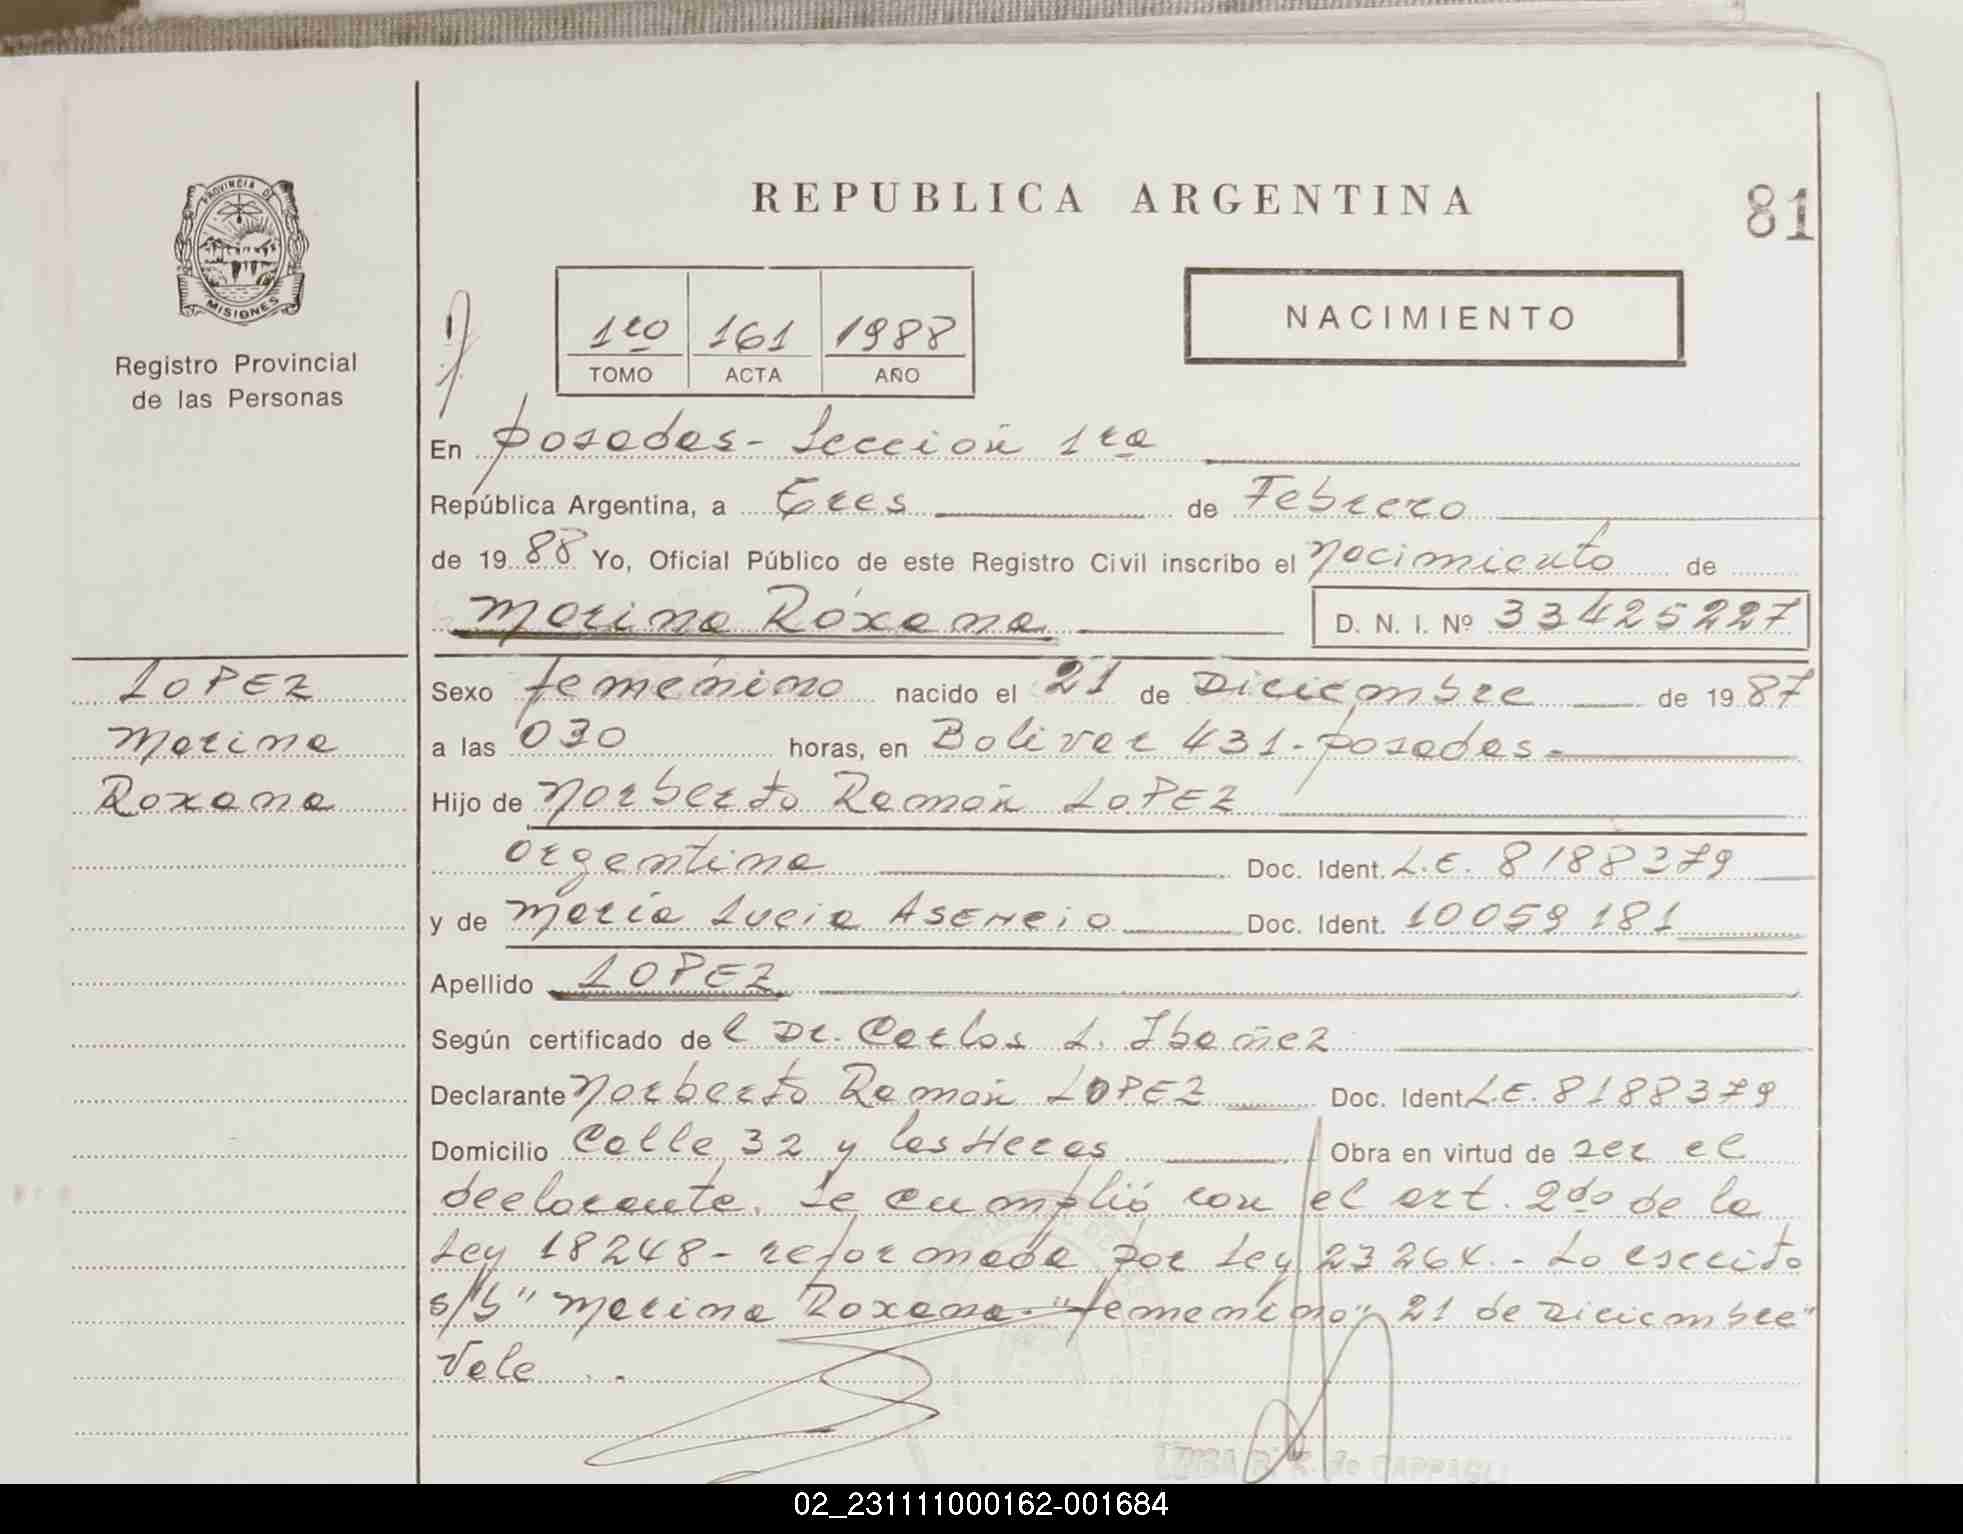 PROVINCIA DE
MISIONES
Registro Provincial
de las Personas
REPUBLICA ARGENTINA
81
1ro 161 1988
TOMO ACTA AÑO
NACIMIENTO
En Posadas- Sección 1ra
República Argentina, a Tres de Febrero
de 1988 Yo, Oficial Público de este Registro Civil inscribo el Nacimiento de
Marina Roxana D. N. I. Nº 33425227
LOPEZ
Marina
Roxana
Sexo femenino nacido el 21 de Diciembre de 1987
a las 030 horas, en Bolivar 431-Posadas-
Hijo de Norberto Ramón LOPEZ
argentina Doc. Ident. L.E. 8188379
y de María Lucia ASENCIO Doc. Ident. 10059181
Apellido LOPEZ
Según certificado del Dr. Carlos L. Ibañez
Declarante Norberto Ramón LOPEZ Doc. Ident L.E. 8188379
Domicilio Calle 32 y las Heras Obra en virtud de ser el
declarante. Se cumplió con el art. 2do de la
Ley 18248- reformada por Ley 23264.- Lo escrito
s/b "Marina Roxana "femenino" 21 de Diciembre"
Vale
02_231111000162-001684